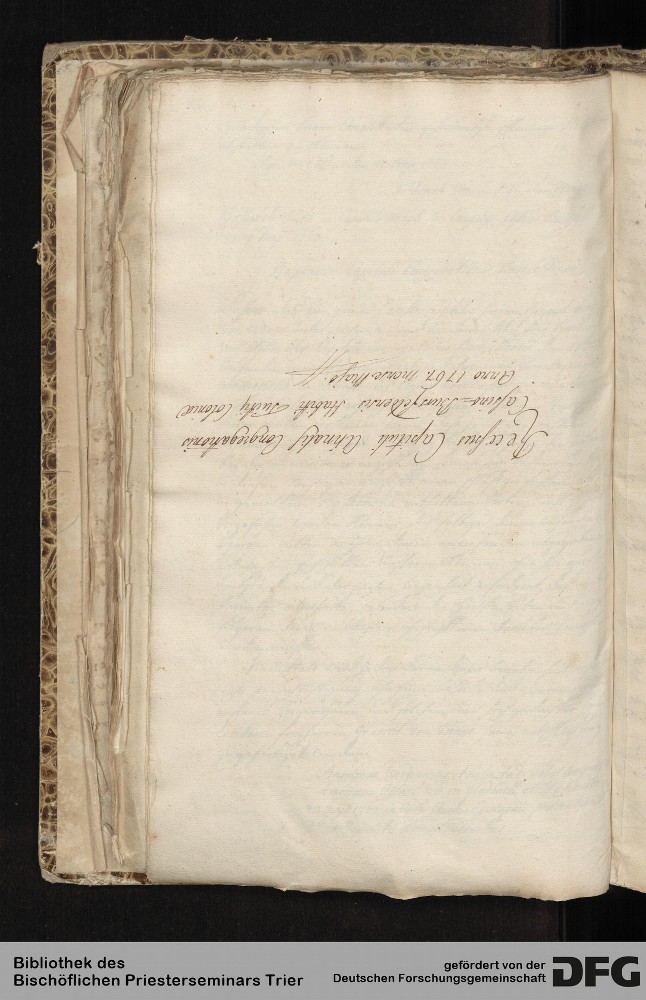 Recessus Capituli Annalis Congregationis
Casino-Bursfeldensis Habiti Tuitii Coloniæ
Anno 1767. mense Majo.
Bibliothek des
Bischöflichen Priesterseminars Trier
gefördert von der
Deutschen Forschungsgemeinschaft
DFG